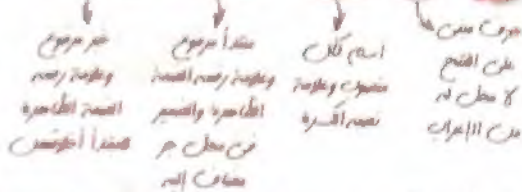 حرف مبني
على الفتح
لا محل له
من الإعراب
اسم لكل
منصوب وعلامة
نصبه الكسرة
مبتدأ مرفوع
وعلامة رفعه الضمة
الظاهرة والضمير
في محل جر
مضاف إليه
خبر مرفوع
وعلامة رفعه
الضمة الظاهرة